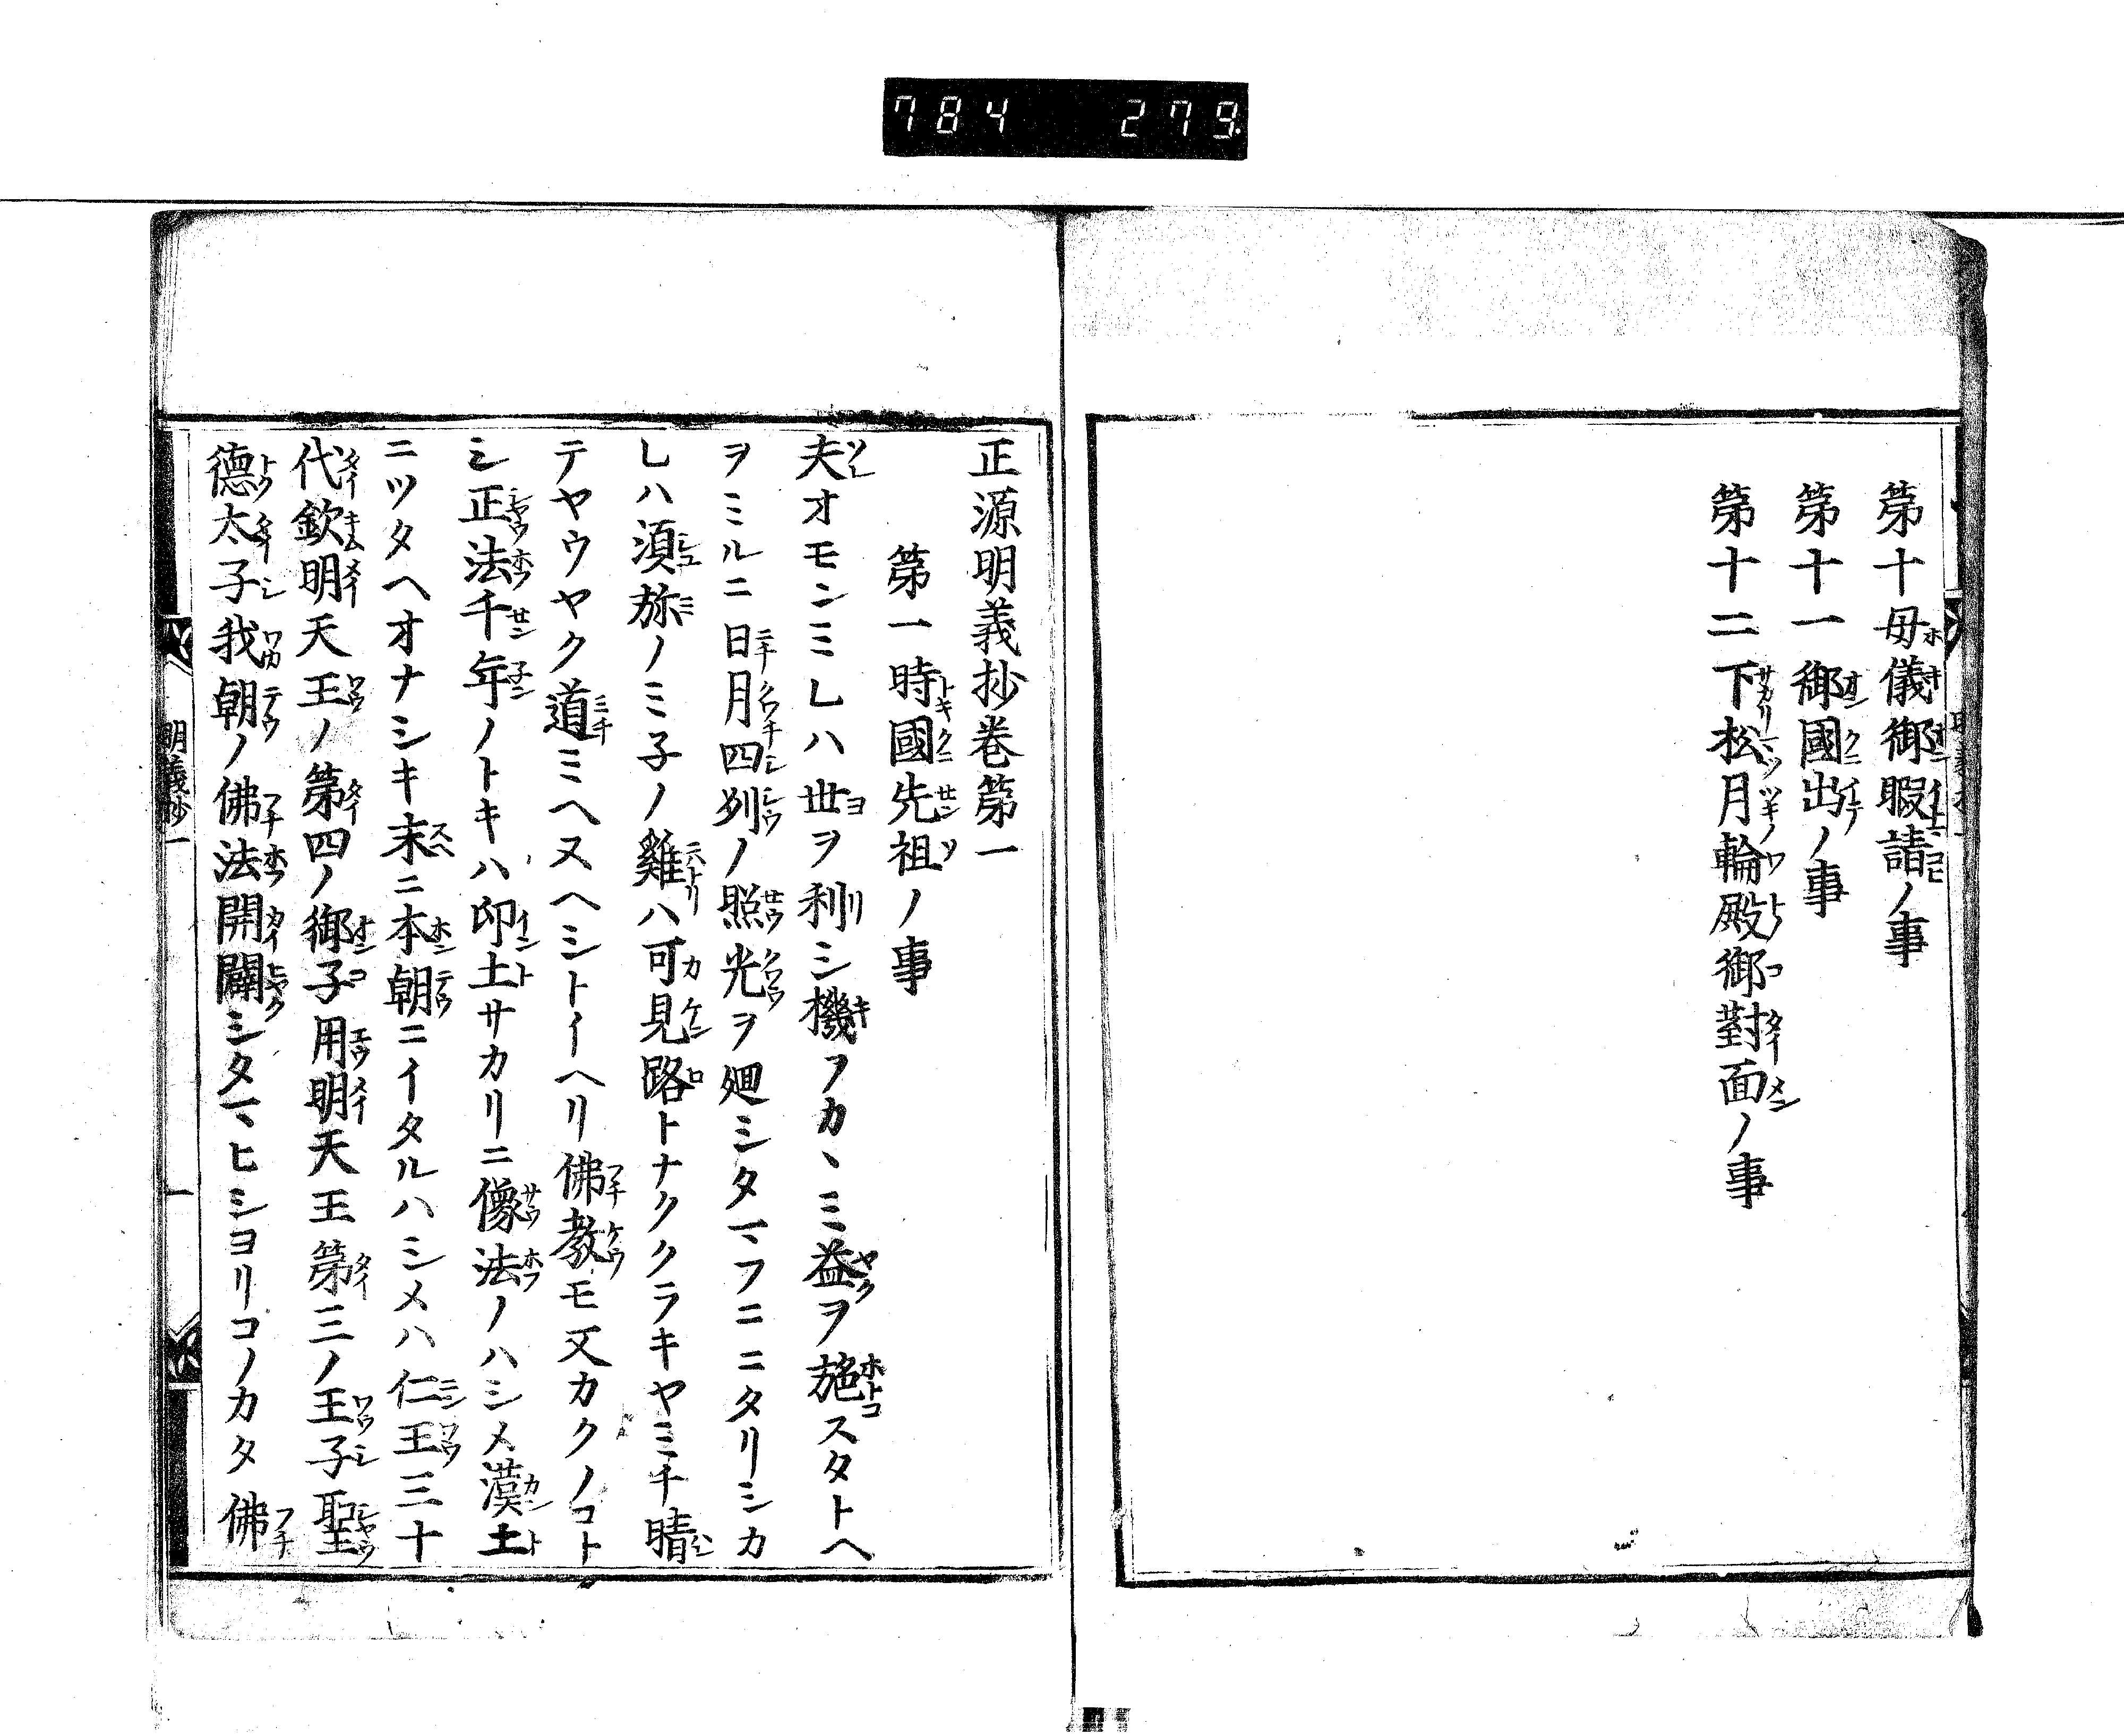 784 279.
第十母儀御暇請ノ事
第十一御國出ノ事
第十二下松月輪殿御對面ノ事
正源明義抄卷第一
第一時國先祖ノ事
夫オモンミレハ世ヲ利シ機フカヽミ益ヲ施スタトヘ
ヲミルニ日月四列ノ照光ヲ廻シタマヽフニニタリシカ
レハ湏弥ノミ子ノ雞ハ可見路トナククラキヤミチ晴
テヤウヤク道ミヘヌヘシトイヘリ佛教モ又カクノコト
シ正法千年ノトキハ印土サカリニ像法ノハシメ漢土
ニツタヘオナシキ末ニ本朝ニイタルハシメハ仁王三十
代欽明天王ノ第四ノ御子用明天王第三ノ王子聖
德太子我朝ノ佛法開闢シタマヽヒシヨリコノカタ佛
明義抄一
一